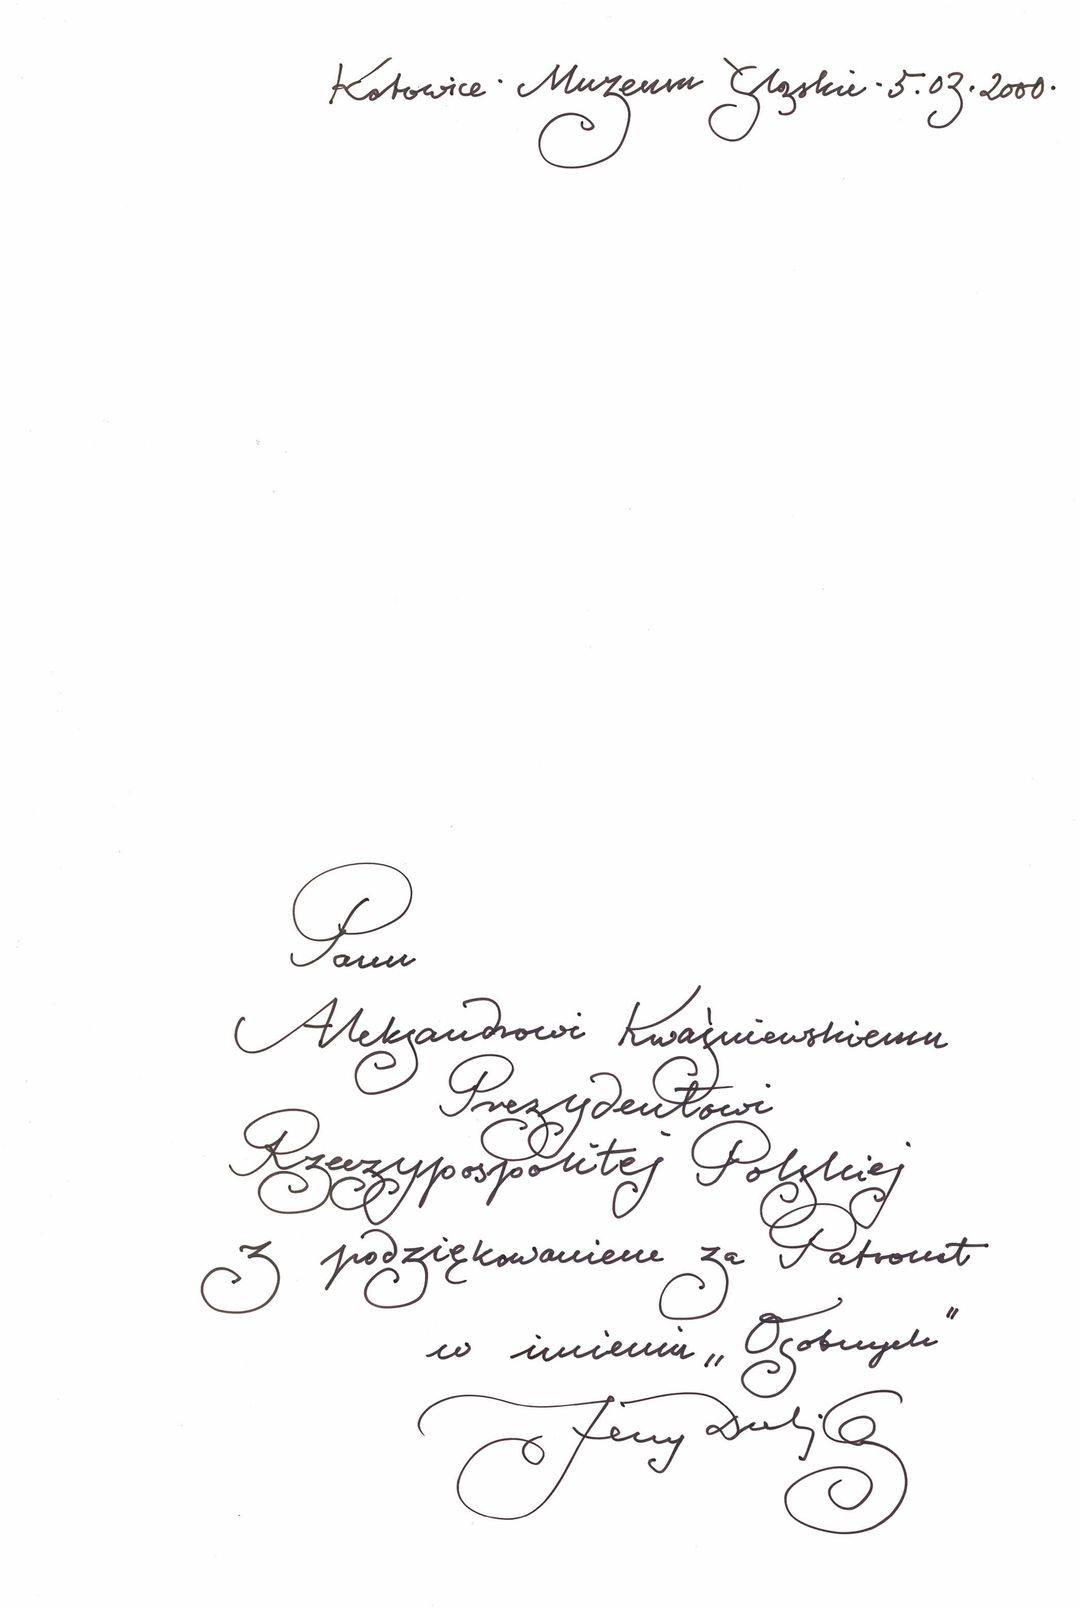 Katowice · Muzeum Śląskie · 5.03.2000.
Panu
Aleksandrowi Kwaśniewskiemu
Prezydentowi
Rzeczypospolitej Polskiej
z podziękowaniem za Patronat
w imieniu „Osobnych”
Jerzy